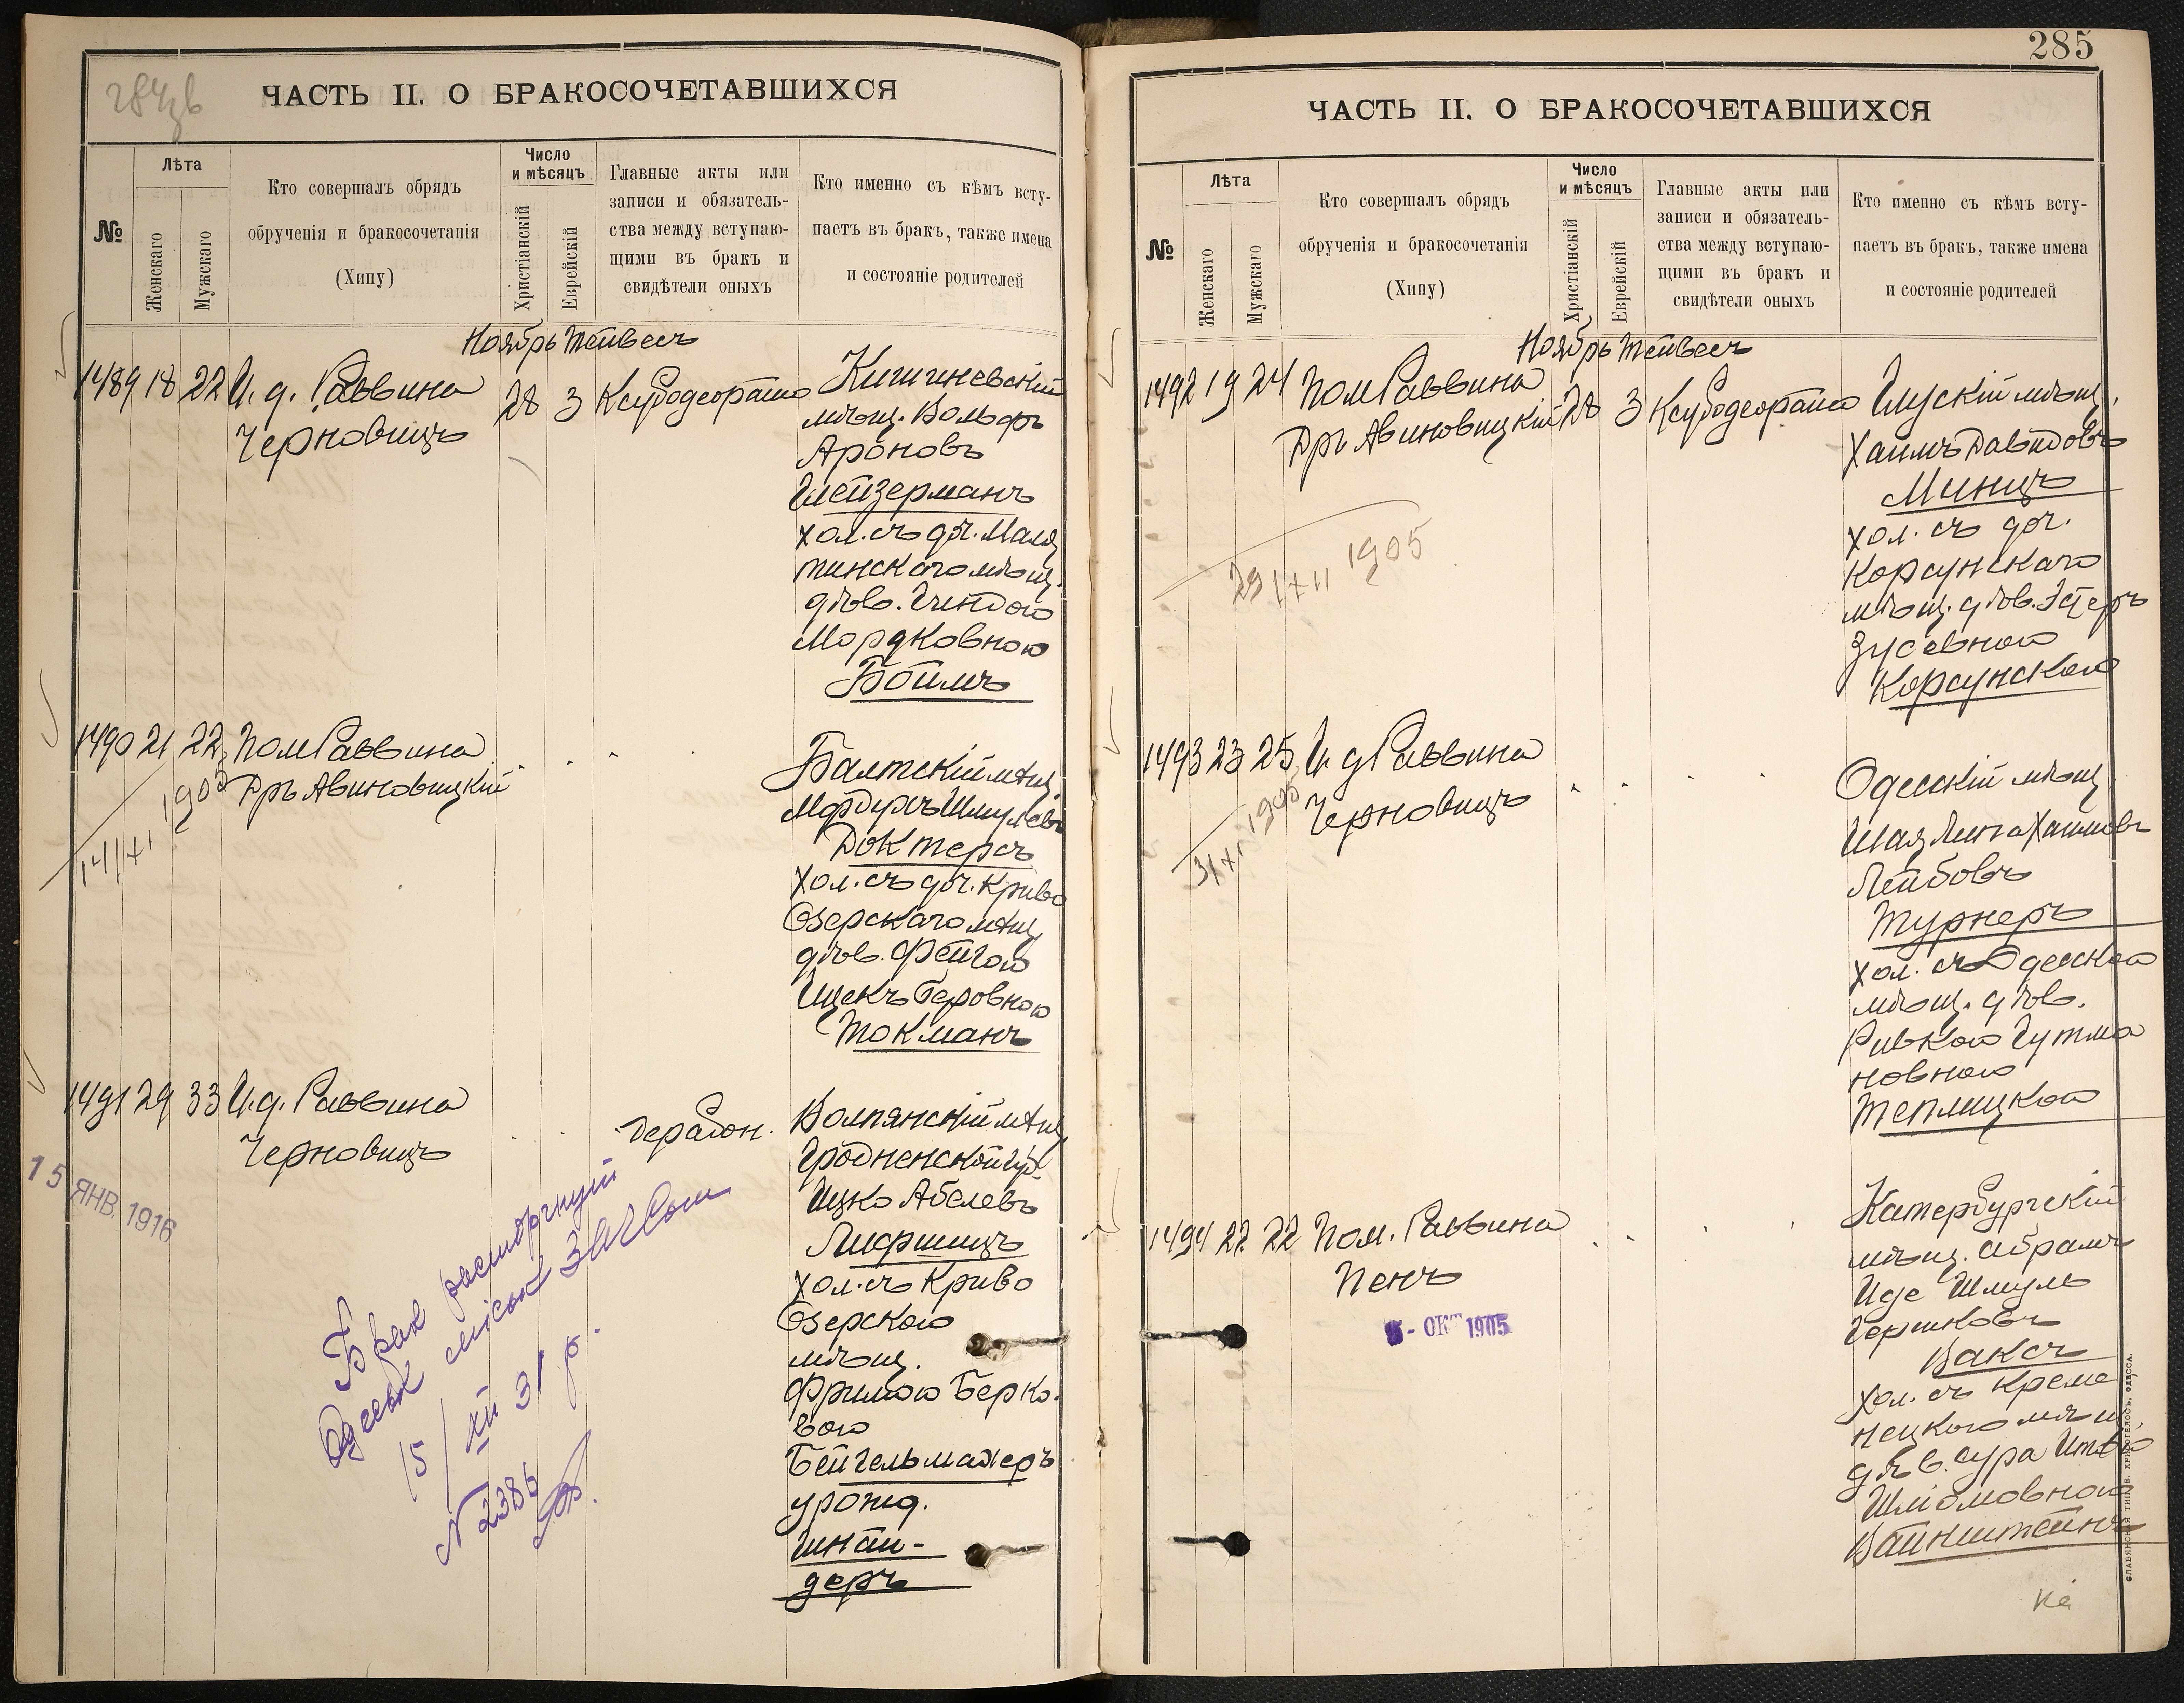 284
ЧАСТЬ II. О БРАКОСОЧЕТАВШИХСЯ
№
Лѣта
Женскаго
Мужскаго
Кто совершалъ обрядъ
обрученія и бракосочетанія
(Хипу)
Число
и мѣсяцъ
Христіанскій
Еврейскій
Главные акты или
записи и обязатель-
ства между вступаю-
щими въ бракъ и
свидѣтели оныхъ
Кто именно съ кѣмъ всту-
паетъ въ бракъ, также имена
и состояніе родителей
Ноябрь Тейвесъ
1489 18 22 И. д. Раввина
Черновицъ
28 3 Ксубодеорайто
Кишиневскій
мѣщ. Вольфъ
Ароновъ
Глейзерманъ
хол. съ доч.
тинскаго мѣщ.
дѣв. Гиндою
Мордковною
Боимъ
1490 21 22 Пом Раввина
Дръ Авиновицкій
14/XI 1905
Балтскій мѣщ.
Шмулевъ
Доктеръ
хол. съ доч. Криво
Озерскаго мѣщ.
дѣв. Фейгою
Беровною
Токманъ
1491 29 33 И. д. Раввина
Черновицъ
15 ЯНВ. 1916
Дерабон.
Волпянскій мѣщ.
Гродненской губ.
Ицко Абелевъ
Лифшицъ
хол. съ Криво
Озерскою
мѣщ.
Фримою Берко-
вою
Бейгельмахеръ
урожд.
Шнай-
деръ
Брак расторгнут
Одесск
15/XII 31 р.
N 2386
285
ЧАСТЬ II. О БРАКОСОЧЕТАВШИХСЯ
№
Лѣта
Женскаго
Мужскаго
Кто совершалъ обрядъ
обрученія и бракосочетанія
(Хипу)
Число
и мѣсяцъ
Христіанскій
Еврейскій
Главные акты или
записи и обязатель-
ства между вступаю-
щими въ бракъ и
свидѣтели оныхъ
Кто именно съ кѣмъ всту-
паетъ въ бракъ, также имена
и состояніе родителей
Ноябрь Тейвесъ
1492 19 24 Пом Раввина
Дръ Авиновицкій
28 3 Ксубодеорайто
29/XII 1905
Глускій мѣщ.
Хаимъ Давидовъ
Минцъ
хол. съ доч.
Корсунскаго
мѣщ. дѣв. Эстеръ
Зусевною
Корсунскою
1493 23 25 И д Раввина
Черновицъ
3/XI 1905
Одесскій мѣщ.
Шая Липа Хаимовъ
Лейбовъ
Турнеръ
хол. съ Одесскою
мѣщ. дѣв.
Ривкою Гутма
новною
Теплицкою
1494 22 22 Пом. Раввина
Пенъ
5 - ОКТ 1905
Катербургскій
мѣщ. Абрамъ
Иде Шмуль
Гершковъ
Ваксъ
хол. съ Креме
нецкою мѣщ.
дѣв. Сура Итею
Шліомовною
Вайнштейнъ
СЛАВЯНСКАЯ ТИП. В. ХРИСОГЕЛОСЪ, ОДЕССА.